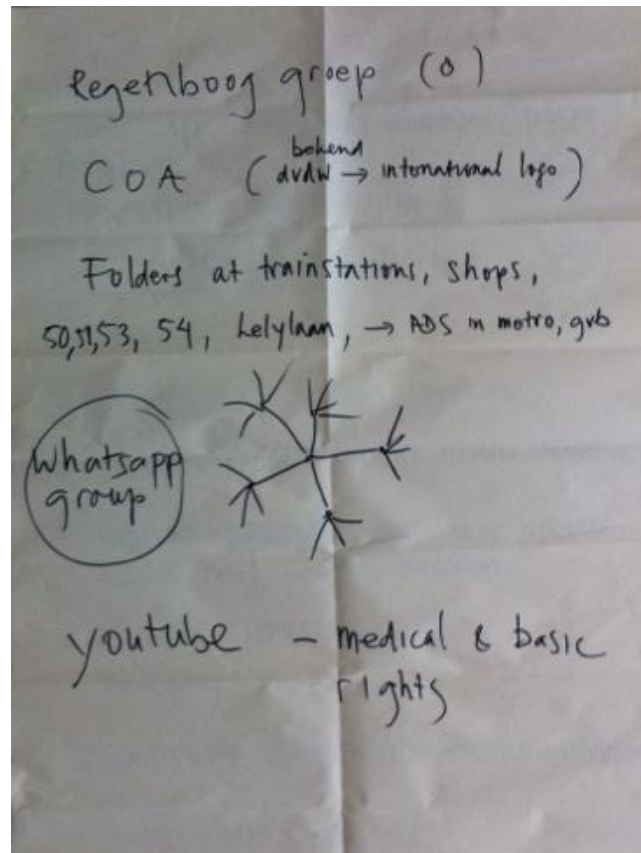 Regenboog groep (o)
bekend
COA ( dvdw → international logo )
Folders at trainstations, shops,
50,51,53, 54, Lelylaan, → ADS in metro, gvb
Whatsapp
group
youtube - medical & basic
rights